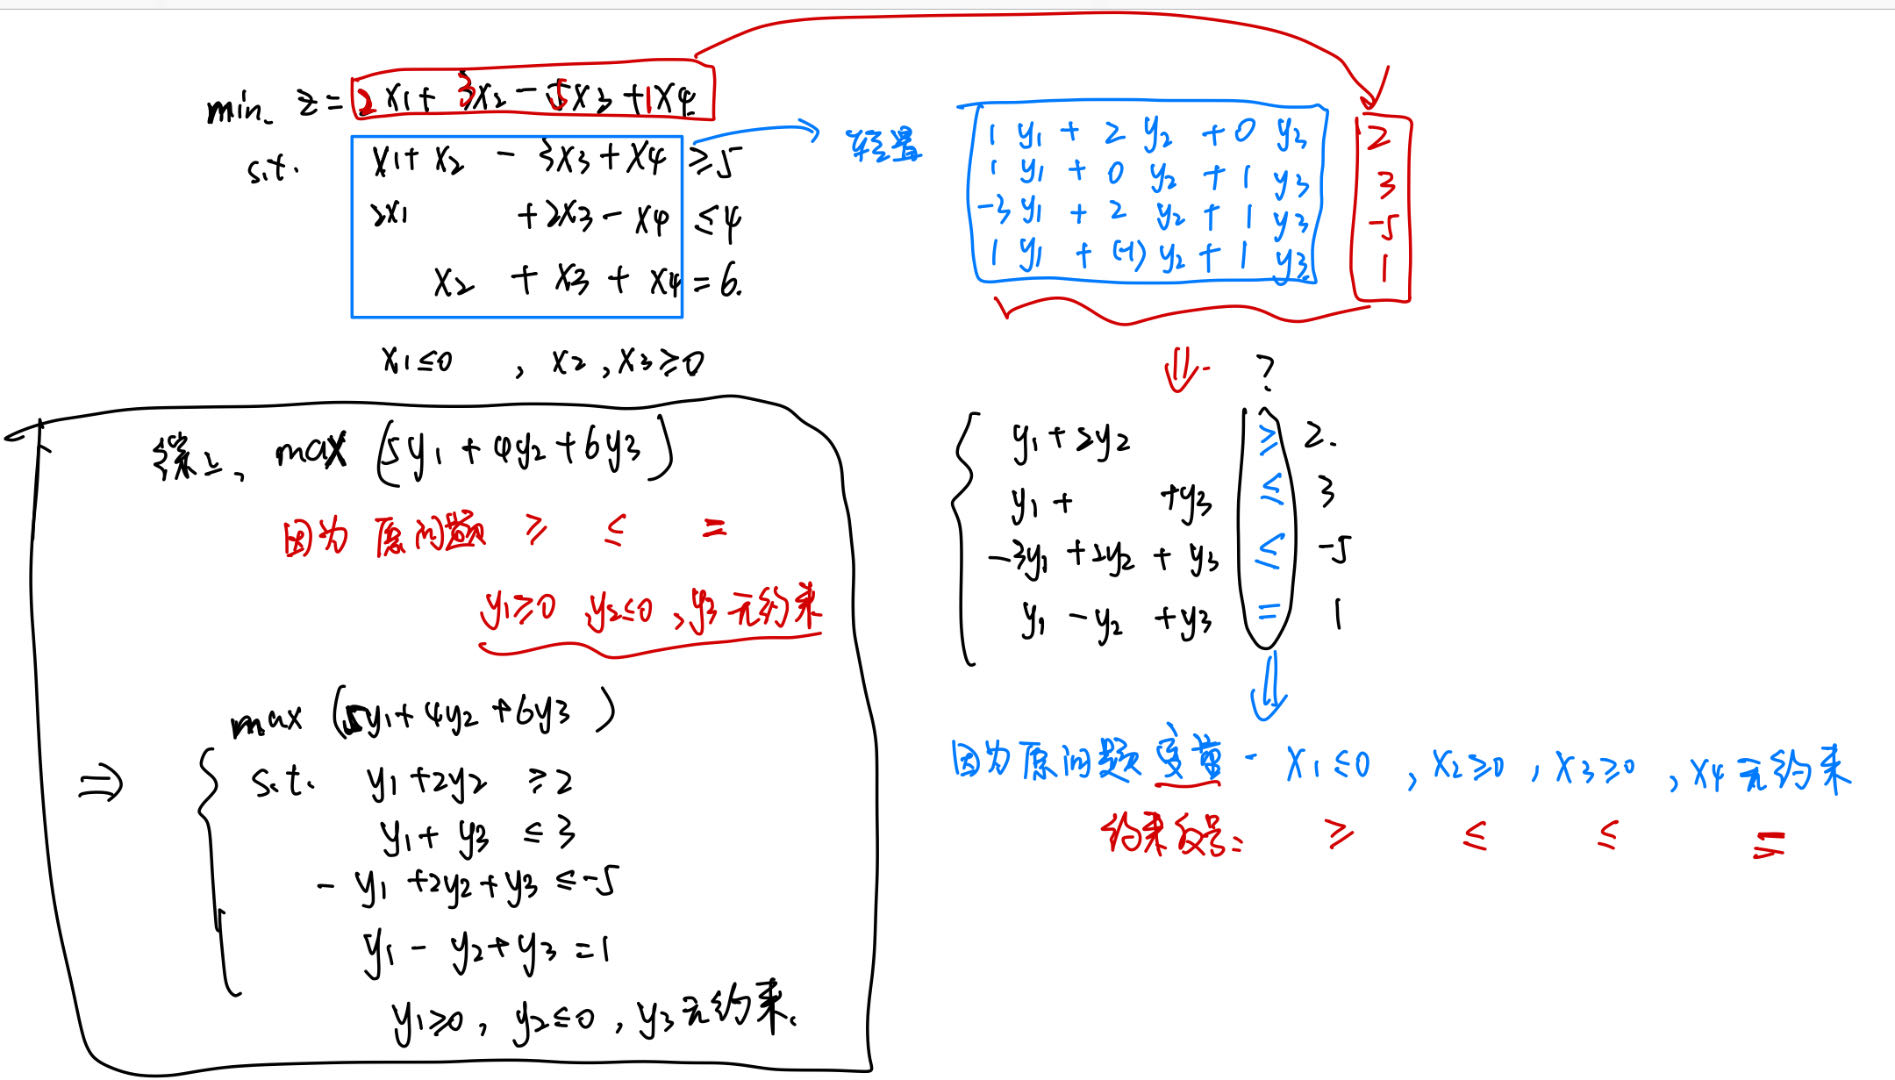 min. z = 2x₁ + 3x₂ - 5x₃ + 1x₄
s.t. x₁ + x₂ - 3x₃ + x₄ ≥ 5
2x₁ + 2x₃ - x₄ ≤ 4
x₂ + x₃ + x₄ = 6.
x₁ ≤ 0 , x₂ , x₃ ≥ 0
转置
1 y₁ + 2 y₂ + 0 y₃ 2
1 y₁ + 0 y₂ + 1 y₃ 3
-3 y₁ + 2 y₂ + 1 y₃ -5
1 y₁ + (-1) y₂ + 1 y₃ 1
?
y₁ + 2y₂ ≥ 2.
y₁ + +y₃ ≤ 3
-3y₁ + 2y₂ + y₃ ≤ -5
y₁ - y₂ + y₃ = 1
因为原问题变量 - x₁ ≤ 0 , x₂ ≥ 0 , x₃ ≥ 0 , x₄ 无约束
约束反号: ≥ ≤ ≤ =
综上, max (5y₁ + 4y₂ + 6y₃)
因为 原问题 ≥ ≤ =
y₁ ≥ 0 y₂ ≤ 0 , y₃ 无约束
⇒ max (5y₁ + 4y₂ + 6y₃ )
s.t. y₁ + 2y₂ ≥ 2
y₁ + y₃ ≤ 3
- y₁ + 2y₂ + y₃ ≤ -5
y₁ - y₂ + y₃ = 1
y₁ ≥ 0 , y₂ ≤ 0 , y₃ 无约束.